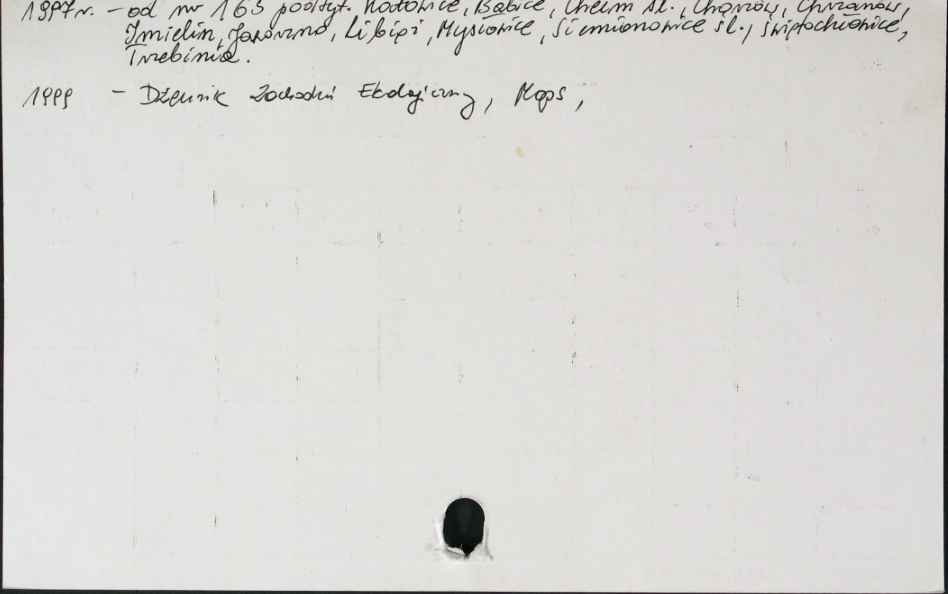 1997r. - od nr 163 podtyt. Katowice, Babice, Chełm Śl., Chorzów, Chrzanów,
Imielin, Jaworzno, Libiąż, Mysłowice, Siemianowice Śl., Świętochłowice,
Trzebinia.
1999 - Dziennik Zachodni Ekologiczny, Mops,